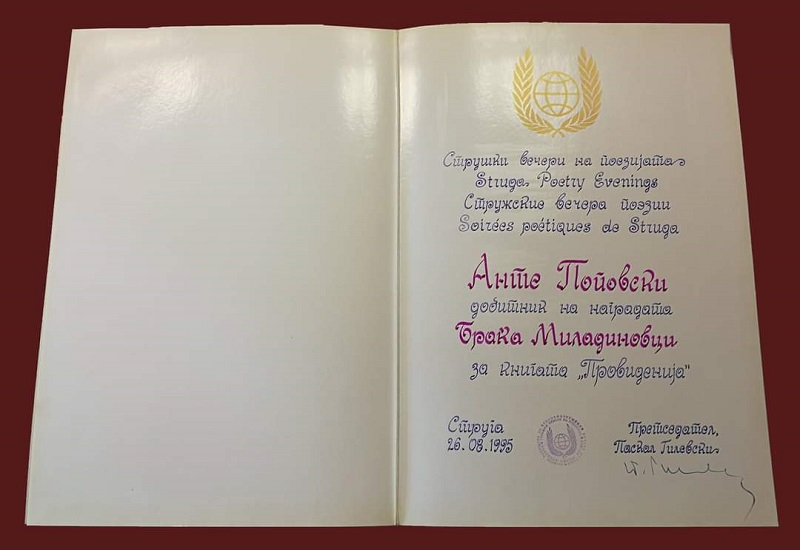 Струшки вечери на поезијата
Struga Poetry Evenings
Стружские вечера поэзии
Soirées poétiques de Struga
Анте Поповски
добитник на наградата
Браќа Миладиновци
за книгата „Провиденија"
Струга
26.08.1995
Претседател,
Паскал Гилевски